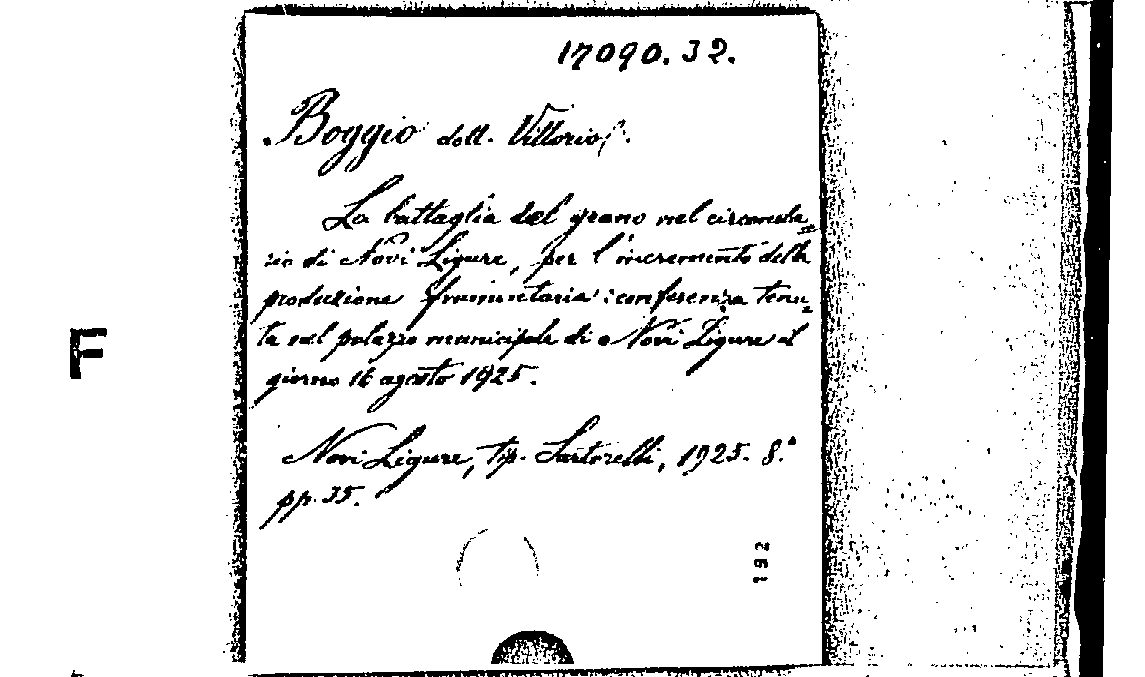 17090.32.
Boggio dott. Vittorio.
La battaglia del grano nel circonda=
rio di Novi Ligure, per l'incremento della
produzione frumentaria: conferenza tenu=
ta nel palazzo municipale di Novi Ligure il
giorno 16 agosto 1925.
F
Novi Ligure, tip. Sartorelli, 1925. 8.°
pp. 35.
192